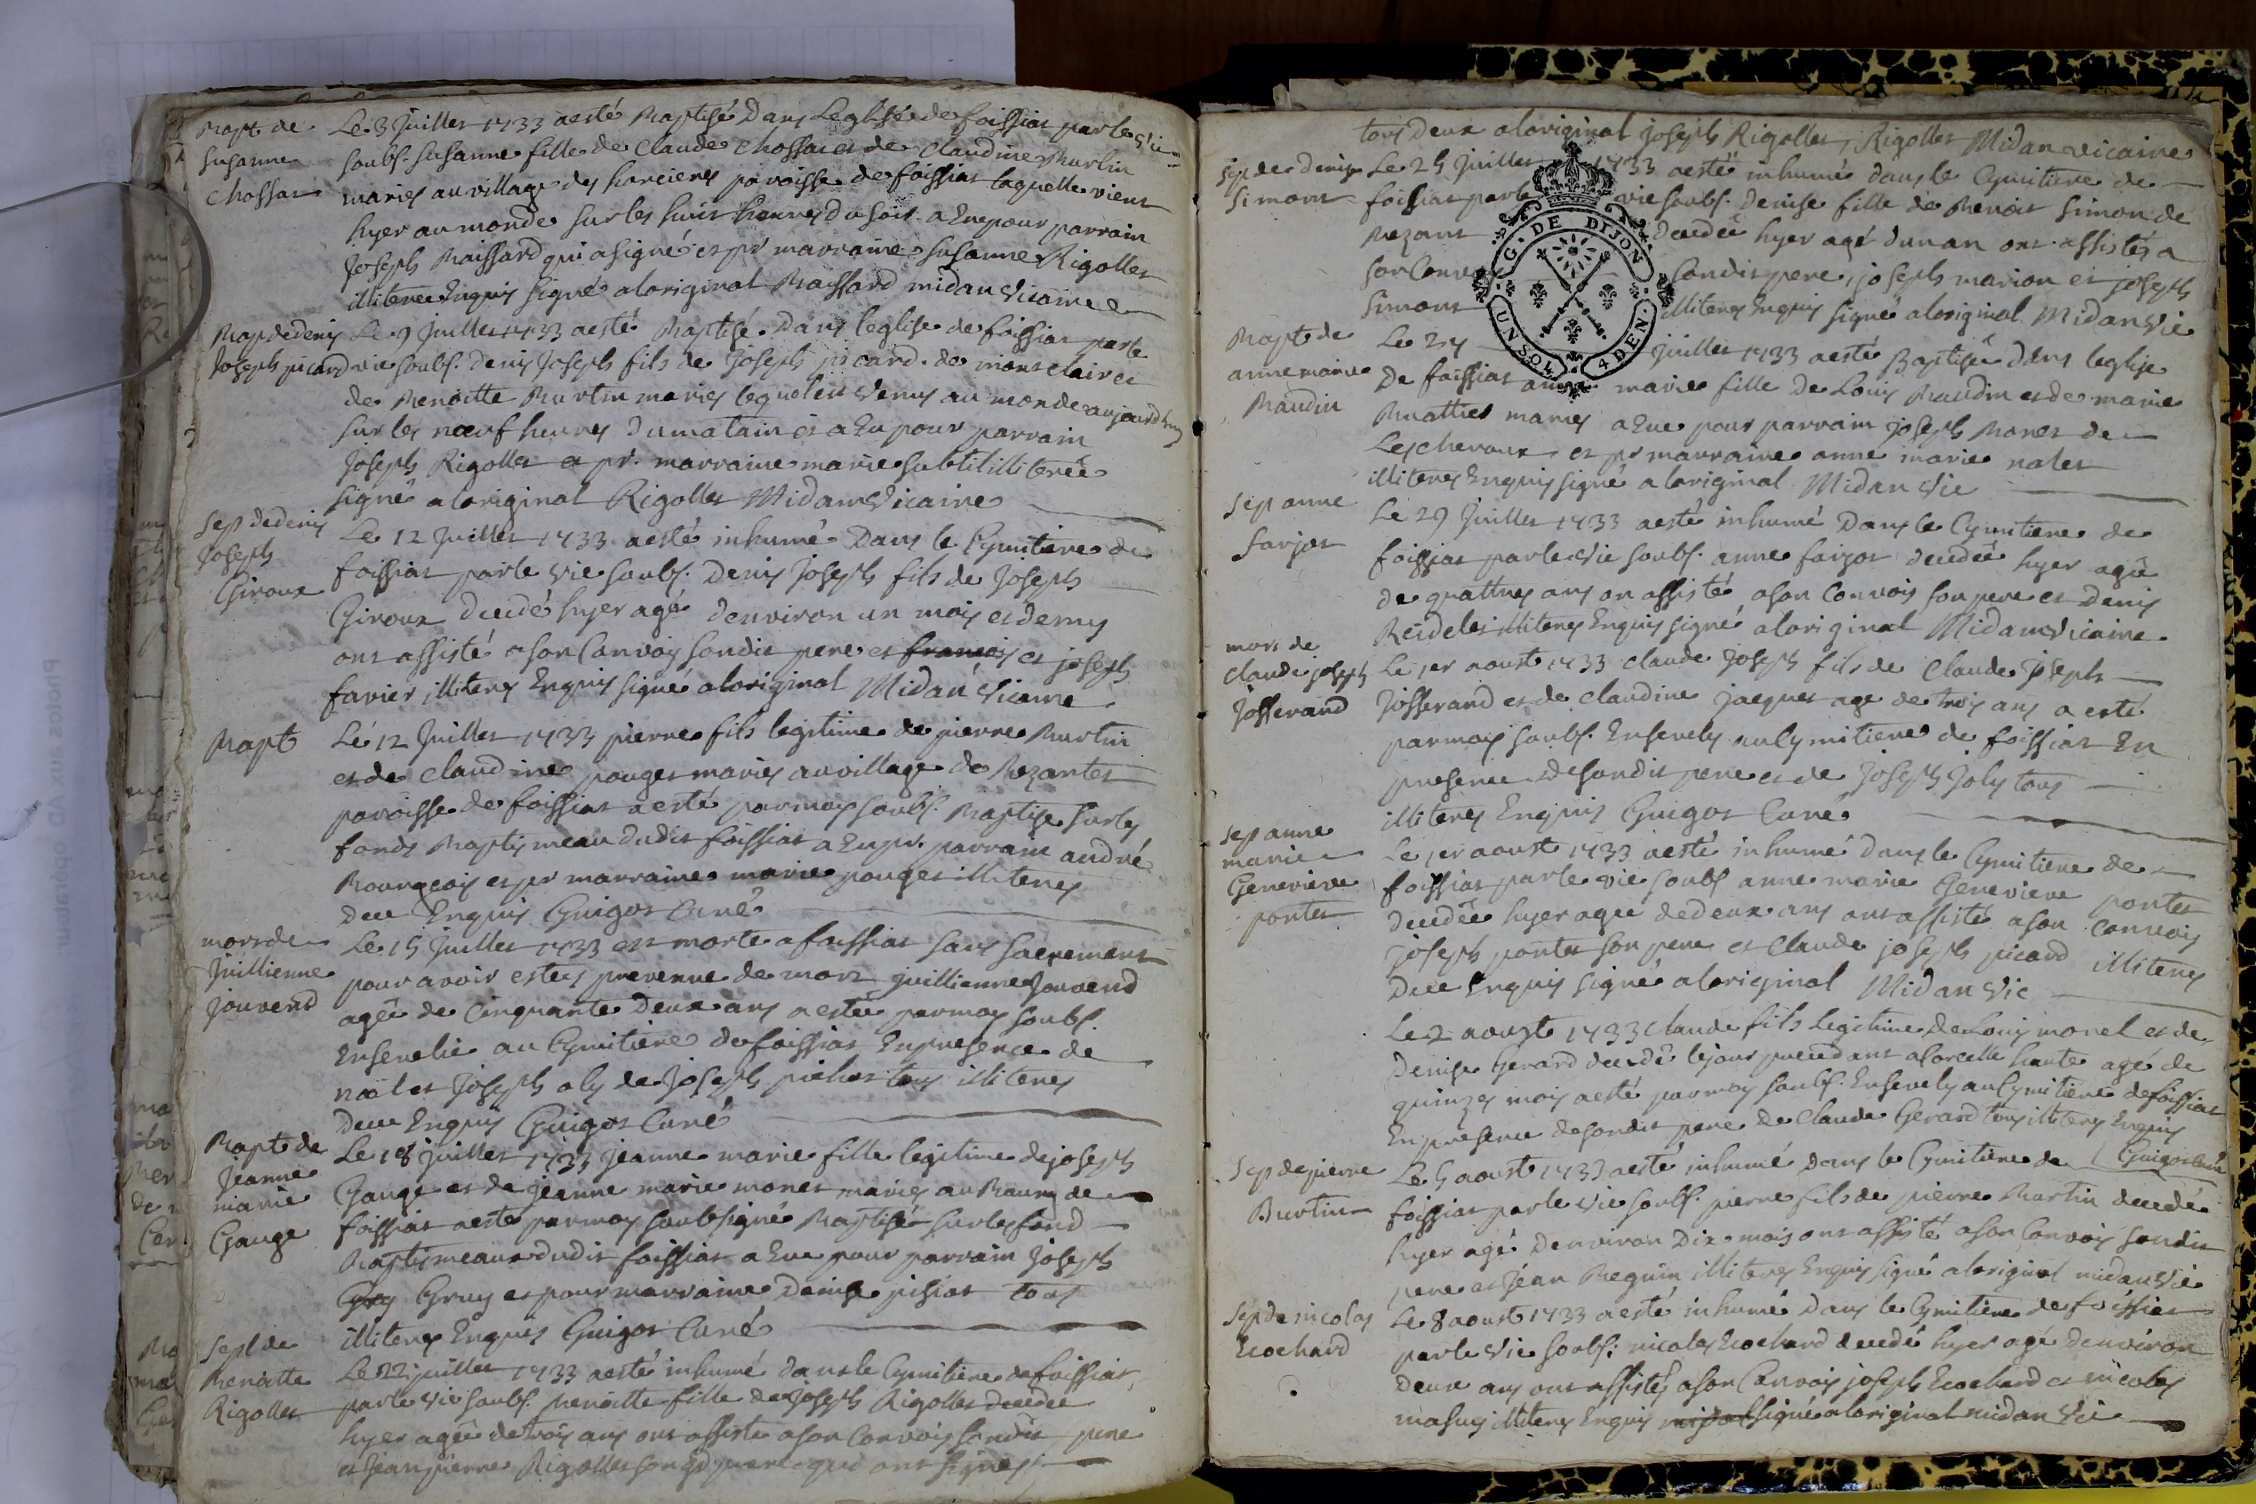 Bapt de
Susanne
Chossat
Le 3 Juillet 1733 a esté Baptisé Dans Leglise de foissiat par le vic
soubs. Susanne fille de Claude Chossat et de Claudine Burtin
mariés au village des paroisse de foissiat laquelle vient
hyer au monde sur les huit heures du soir a Eue pour parrain
Joseph Raissard qui a signé et pr marraine Susanne Rigollet
illiteree Enquis signé a loriginal Raissard midan vicaire
Bap de denis
Joseph picard
Le 9 Juillet 1733 a esté Baptisé Dans leglise de foissiat par le
vic soubs. Denis Joseph fils de Joseph picard de montclair et
de Benoitte Burtin mariés lequel est venus au monde aujourdhuy
sur les neuf heures du matain et a Eu pour parrain
Joseph Rigollet et pr. marraine marie subtil illiterée
signé a loriginal Rigollet Midan vicaire
Sep de denis
Joseph
Giroux
Le 12 Juillet 1733 a esté inhumé Dans le Cymitiere de
foissiat par le vic soubs. Denis Joseph fils de Joseph
Giroux decedé hyer agé denviron un mois et demy
ont assisté a son Convoy sondit pere et francois et joseph
favier illiterés Enquis signé a loriginal Midan vicaire
Bapt
Le 12 Juillet 1733 pierre fils legitime de pierre Burtin
et de Claudine pouget mariés au village de Bezantet
paroisse de foissiat a esté par moy soubs. Baptisé sur les
fonds Baptismeau dudit foissiat a Eu pr. parrain andré
Bourgeois et pr marraine marie pouget illiterés
Dece Enquis Guigot Curé
mort de
Juillienne
Jouvend
Le 15 Juillet 1733 est morte a foissiat sans sacrement
pour avoir esteés prevenue de mort guillienne Jouvend
agée de Cinquante Deux ans a esteé par moy soubs.
Ensevelie au Cymitiere de foissiat En presence de
noel et Joseph aly de Joseph pichet tous illiterés
Dece Enquis Guigot Curé
Bapt de
Jeanne
marie
Gauge
Le 18 Juillet 1733 Jeanne marie fille legitime de joseph
Gauge et de Jeanne marie monet mariés au Bourg de
foissiat a esté par moy soubsigné Baptisé sur les fond
Baptismeaux dudit foissiat a Eue pour parrain Joseph
Gruy et pour marraine Denise pisiat tous
illiterés Enquis Guigot Curé
Sept de
Benoitte
Rigollet
Le 22 juillet 1733 a esté inhumé dans le Cymitiere de foissiat
par le vic soubs. Benoitte fille de Joseph Rigollet decedé
hyer agée de trois ans ont assisté a son Convoy sondit pere
et Jean pierre Rigollet son gd pere qui ont signés
tous deux a loriginal Joseph Rigollet, Rigollet Midan vicaire
Sep de denise
Simont
Le 25 Juillet 1733 a esté inhumé dans le Cymitiere de
foissiat par le vic soubs. Denise fille de Benoit Simon de
Bezant decedé hyer agé dun an ont assistés a
son Convoy sondit pere, joseph marion et joseph
Simont illiterés Enquis signé a loriginal Midan vic
G. DE DIJON
UN SOL 4 DEN.
Bapt de
anne marie
Baudin
Le 27 Juillet 1733 a esté Baptisée dans leglise
De foissiat anne marie fille de Louis Baudin et de marie
Buattier mariés a Eue pour parrain joseph Monet de
Lescheroux et pr marraine anne marie nalet
illiterés Enquis signé a loriginal Midan vic
Sep anne
farjot
Le 29 Juillet 1733 a esté inhumé Dans le Cymitiere de
foissiat par le vic soubs. anne farjot decedé hyer agée
de quattres ans on assisté a son Convois son pere et Denis
Reidelet illiterés Enquis signé a loriginal Midan vicaire
mort de
Claude joseph
Josserand
Le 1er aoust 1733 Claude Joseph fils de Claude joseph
Josserand et de Claudine jacquet age de trois ans a esté
par moy soubs. Ensevely au Cymitiere de foissiat En
presence de sondit pere et de Joseph Joly tous
illiterés Enquis Guigot Curé
Sep anne
marie
Genevieve
pontet
Le 1er aoust 1733 a esté inhumé dans le Cymitiere de
foissiat par le vic soubs anne marie Genevieve pontet
decedée hyer agée de deux ans ont assisté a son Convois
joseph pontet son pere et Claude joseph picard illiterés
Dece Enquis signé a loriginal Midan vic
Le 2 aoust 1733 Claude fils legitime de Louis monel et de
Denise Gerard decedé le jour precedant a lorcelle haute agé de
quinzes mois a esté par moy soubs. Ensevely au Cymitiere de foissiat
En presence de sondit pere de Claude Gerard tous illiterés Enquis
Guigot Curé
Sep de pierre
Burtin
Le 5 aoust 1733 a esté inhumé dans le Cymitiere de
foissiat par le vic soubs. pierre fils de pierre Burtin decedé
hyer agé denviron Dix mois ont assisté a son Convoy sondit
pere et Jean Beguin illiterés Enquis signé a loriginal midan vic
Sep de nicolas
Ecochard
Le 8 aoust 1733 a esté inhumé Dans le Cymitiere de foissiat
par le vic soubs. nicolas Ecochard decedé hyer agé denviron
deux ans ont assistés a son Convoy joseph Ecochard et nicolas
masuy illiterés Enquis signé a loriginal midan vic